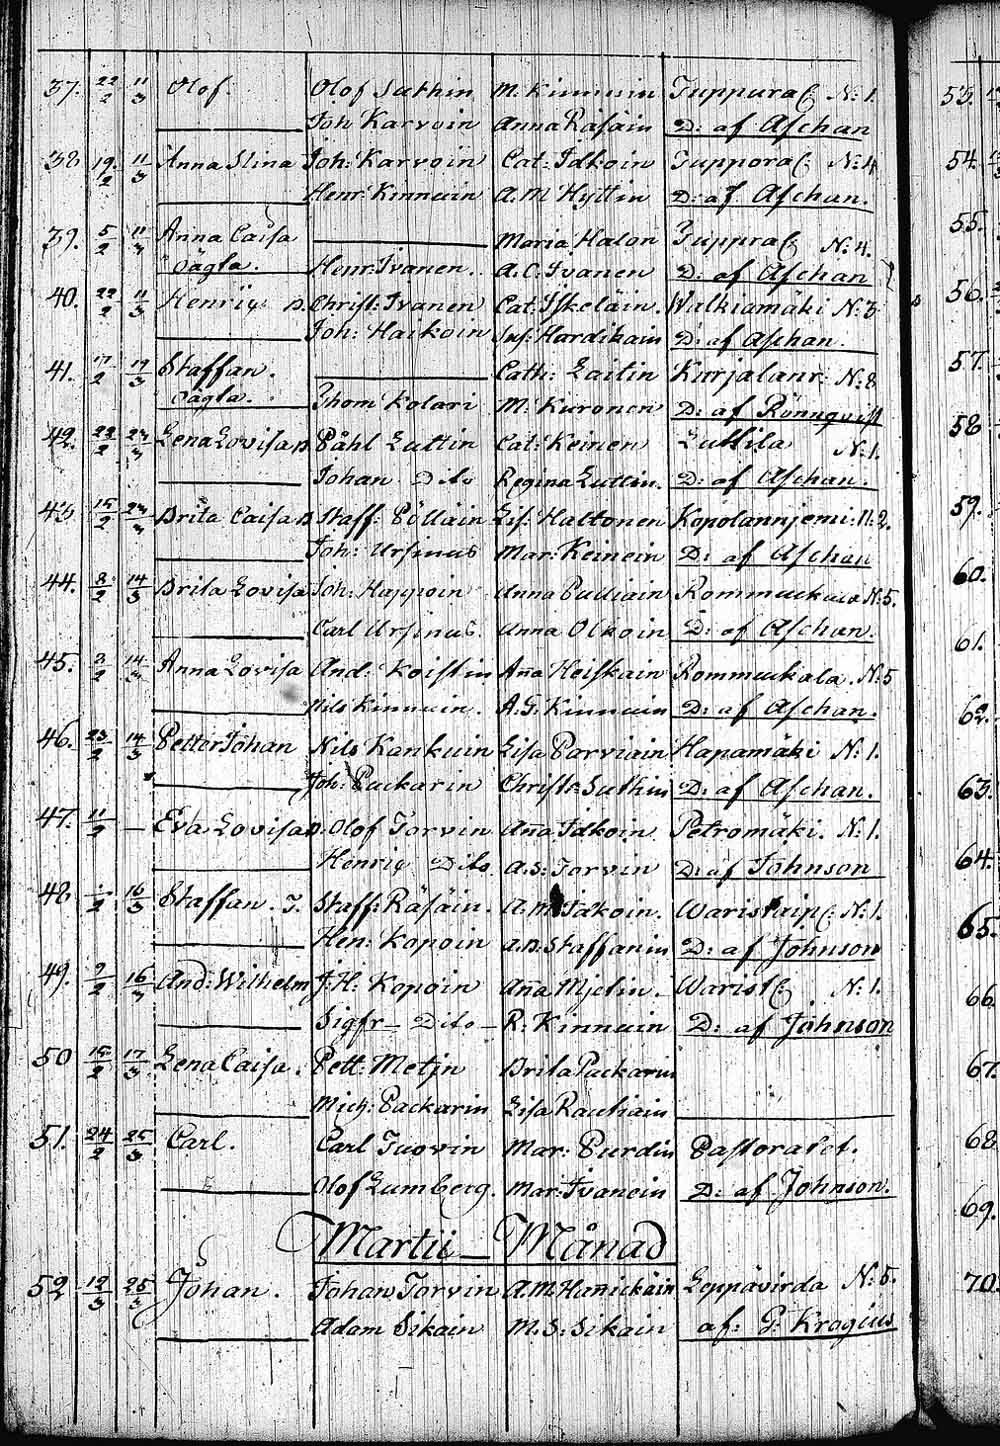 37. 22/2 11/3 Olof. Olof Suthin M. Kinnuin Juppura N: 1.
Joh Karvoin Anna Räsäin D: af Aschan
38 19/2 11/3 Anna Stina Joh: Karvoin Cat: Idkoin Juppora N: 4
Henr: Kinnuin A. M Hyttin D: af Aschan.
39. 5/2 11/3 Anna Caisa Maria Halon Juppra N: 4.
oägta. Henr: Ivanen. A. C. Ivanen D: af Aschan
40. 22/2 11/3 Henric Christ: Ivanen Cat: Iskeläin. Walkiamäki N: 3
Joh: Haikoin Hardikain D: af Aschan.
41. 17/2 19/3 Staffan. Cath: Laitin Kurjalanr: N: 8
oägta. Thom Kolari M: Kuronen D: af Rönnqvist
42. 22/2 23/3 Lena Lovisa Påhl Luttin Cat: Keinen Luttila N: 1.
Johan Dito Regina Luttin. D: af Aschan.
43 15/2 23/3 Brita Caisa Staff: Pölläin Lis: Haltonen Kopolanniemi: N: 2.
Joh: Ursinus Mar: Keinein D: af Aschan
44. 8/2 14/3 Brita Lovisa Joh: Happoin Anna Pulliain N: 5.
Carl Ursinus. Anna Olkoin D: af Aschan.
45. 3/2 14/3 Anna Lovisa And: Koistin Aña Heiskain Rommukala. N: 5
Nils Kinnuin. A: G: Kinnuin D: af Aschan.
46. 23/2 14/3 Petter Johan Nils Kankuin Lisa Parviain Hapamäki N: 1.
Joh: Packarin Christ: Suthin D: af Aschan.
47. 11/2 — Eva Lovisa Olof Torvin Aña Idkoin Petromäki. N: 1.
Henric Dito A: S: Torvin D: af Johnson
48. 1/2 16/3 Staffan. T. Staff: Räsäin. A: M Idkoin. N: 1.
Hen: Kopoin Staffanin D: af Johnson
49. 9/2 16/3 And: Wilhelm J: H: Kopoin Aña Mjelin. Warist N: 1.
Sigfr — Dito — R: Kinnuin D: af Johnson
50 15/2 17/3 Lena Caisa. Pett: Metjn Brita Packarin
Mich: Packarin Lisa Rautiain
51. 24/2 25/3 Carl. Carl Tuovin Mar: Purdin Pastoratet.
Olof Lumberg. Mar: Ivanein D: af Johnson.
Martii — Månad
52 12/3 25/3 Johan. Johan Torvin A. M Hanickäin Leppävirda N: 5.
Adam Sikain M. S: Sikain af: G: Krogius
53.
54.
55.
56.
57.
58
59.
60.
61.
62.
63.
64.
65.
66
67.
68
69.
70.